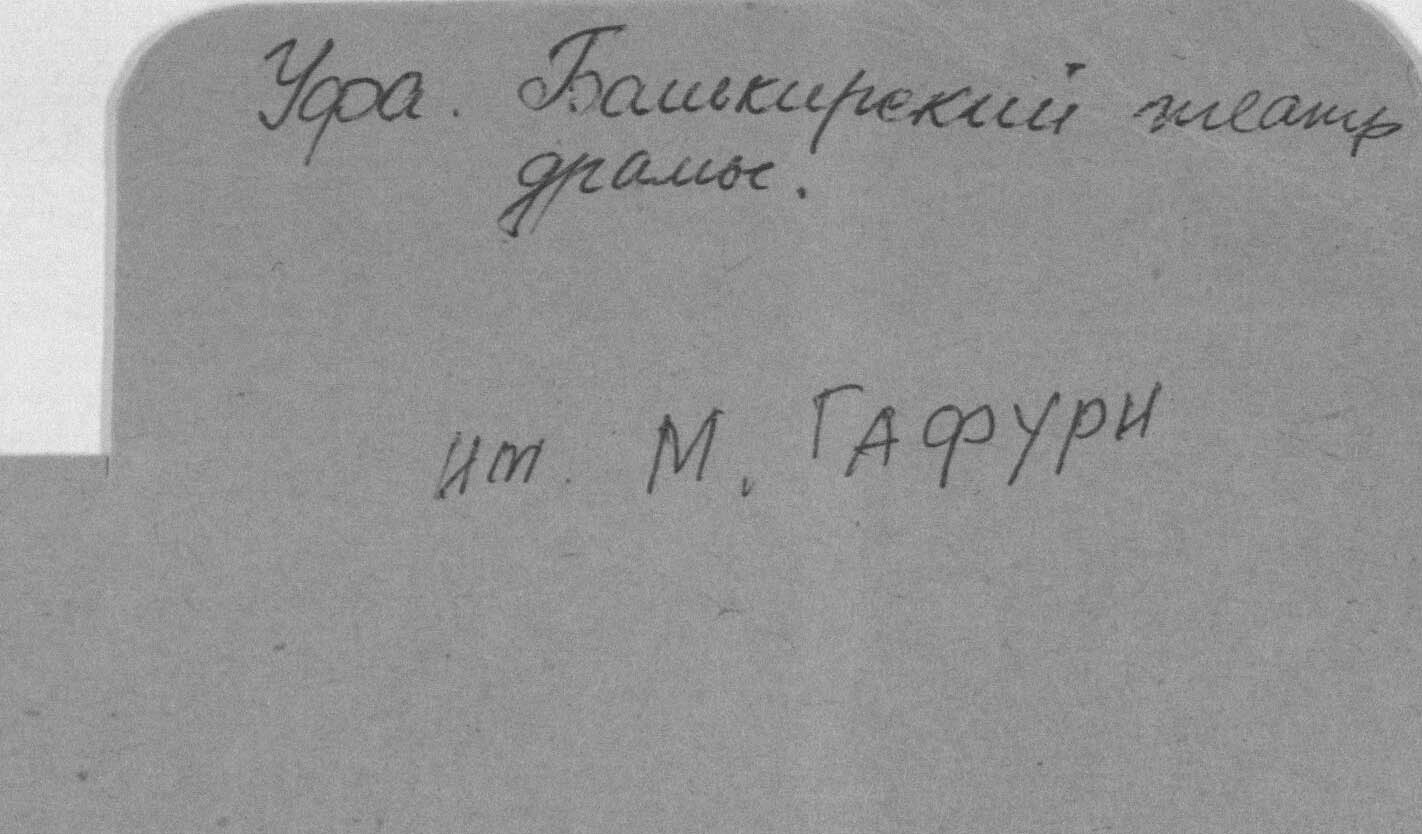 Уфа. Башкирский театр
драмы.
им. М. ГАФУРИ